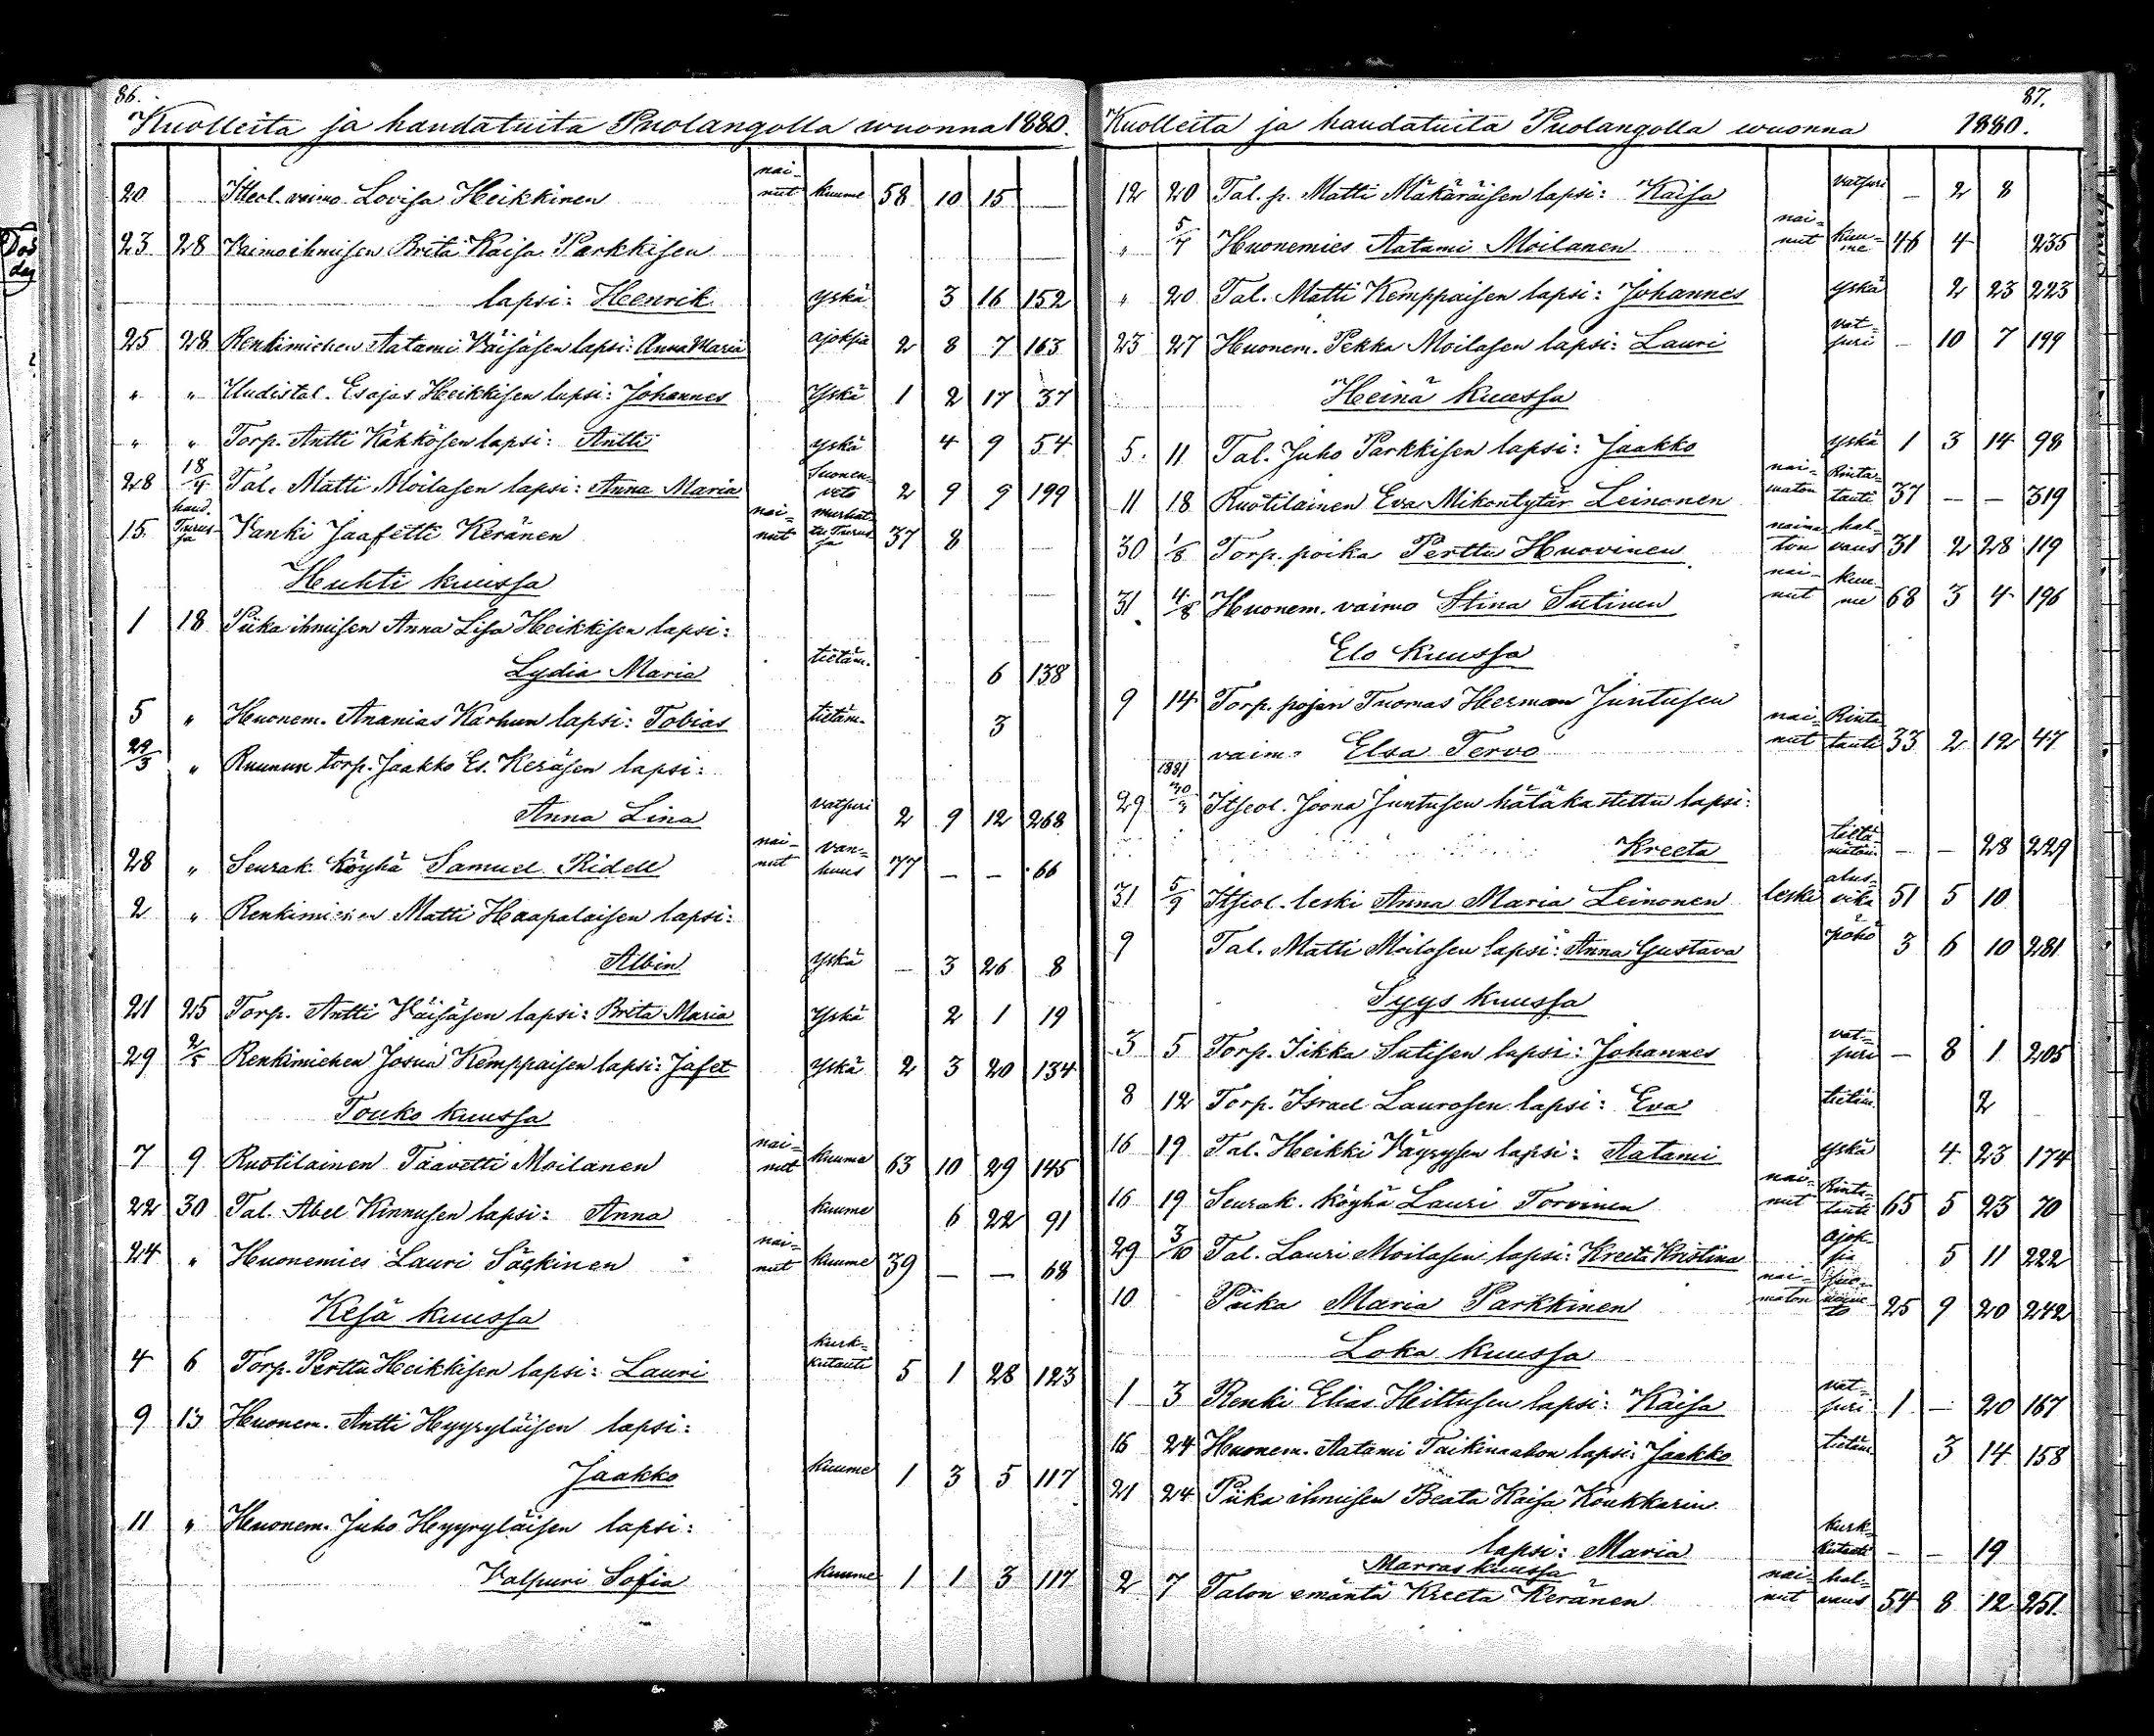 86.
Kuolleita ja haudatuita Puolangolla wuonna 1880.
20 Itseol. vaimo Lovisa Heikkinen nai- nut kuume 58 10 15 —
23 28 Vaimoihmisen Brita Kaisa Parkkisen
lapsi: Henrik yskä 3 16 152
25 28 Renkimiehen Aatami Väisäsen lapsi: Anna Maria ajoksia 2 8 7 163
" " Uudistal. Esajas Heikkisen lapsi: Johannes Yskä 1 2 17 37
" " Torp. Antti Kähkösen lapsi: Antti yskä 4 9 54
28 18/4 Tal. Matti Moilasen lapsi: Anna Maria Suonen- veto 2 9 9 199
15 haud. Turus- sa Vanki Jaafetti Keränen nai- nut murhat- tu Turus- sa 37 8 —
Huhti kuussa
1 18 Piika ihmisen Anna Lisa Heikkisen lapsi:
Lydia Maria tietäm. 6 138
5 " Huonem. Ananias Karhun lapsi: Tobias tietäm. 3
29/3 " Ruunun torp. Jaakko Es. Keräsen lapsi:
Anna Lina vatsuri 2 9 12 268
28 " Seurak. köyhä Samuel Ridell nai- nut van- huus 77 — — 66
2 " Renkimiehen Matti Haapalaisen lapsi:
Albin yskä — 3 26 8
21 25 Torp. Antti Väisäsen lapsi: Brita Maria Yskä 2 1 19
29 2/5 Renkimiehen Josua Kemppaisen lapsi: Jafet Yskä 2 3 20 134
Touko kuussa
7 9 Ruotilainen Taavetti Moilanen nai- nut kuume 63 10 29 145
22 30 Tal. Abel Kinnusen lapsi: Anna kuume 6 22 91
24 " Huonemies Lauri Säkkinen nai- nut kuume 39 — — 68
Kesä kuussa
4 6 Torp. Perttu Heikkisen lapsi: Lauri kurk- kutauti 5 1 28 123
9 13 Huonem. Antti Hyyryläisen lapsi:
Jaakko kuume 1 3 5 117
11 " Huonem. Juho Hyyryläisen lapsi:
Valpuri Sofia kuume 1 1 3 117
87.
Kuolleita ja haudatuita Puolangolla wuonna 1880.
12 20 Tal. p. Matti Mäkäräisen lapsi: Kaisa vatsuri — 2 8
" 5/7 Huonemies Aatami Moilanen nai- nut kuu- me 46 4 235
" 20 Tal. Matti Kemppaisen lapsi: Johannes yskä 2 23 223
23 27 Huonem. Pekka Moilasen lapsi: Lauri vat- suri — 10 7 199
Heinä kuussa
5. 11 Tal. Juho Parkkisen lapsi: Jaakko yskä 1 3 14 98
11 18 Ruotilainen Eva Mikontytär Leinonen nai- maton Rinta- tauti 37 — — 319
30 1/8 Torp. poika Perttu Huovinen naima- ton hal- vaus 31 2 28 119
31 4/8 Huonem. vaimo Stina Sutinen nai- nut kuu- me 68 3 4 196
Elo kuussa
9 14 Torp. pojan Tuomas Herman Juntusen
vaimo Elsa Tervo nai- nut Rinta- tauti 33 2 12 47
29 1881 Itseol. Joona Juntusen hätäkastettu lapsi:
Kreeta tietä- mätön — — 28 229
31 5/9 Itseol. leski Anna Maria Leinonen leski alus- vika 51 5 10
9 Tal. Matti Moilasen lapsi: Anna Gustava pöhö 3 6 10 281
Syys kuussa
3 5 Torp. Iikka Sutisen lapsi: Johannes vat- suri — 8 1 205
8 12 Torp. Israel Laurosen lapsi: Eva tietäm. 2
16 19 Tal. Heikki Väyrysen lapsi: Aatami yskä 4 23 174
16 19 Seurak. köyhä Lauri Torvinen nai- nut Rinta- tauti 65 5 23 70
29 3/10 Tal. Lauri Moilasen lapsi: Kreeta Kristina ajok- sia 5 11 222
10 Piika Maria Parkkinen nai- maton 25 9 20 242
Loka kuussa
1 3 Renki Elias Heiltusen lapsi: Kaisa vat- suri 1 — 20 167
16 24 Huonem. Aatami Taikinaahon lapsi: Jaakko tietäm. 3 14 158
21 24 Piika ihmisen Beata Kaisa Koukkarin
lapsi: Maria kurk- kutauti — — 19
Marras kuussa
2 7 Talon emäntä Kreeta Keränen nai- nut hal- vaus 54 8 12 251.